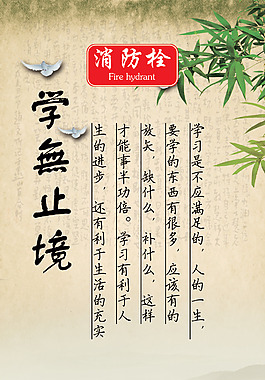 消防栓
Fire hydrant
学無止境
学习是不应满足的，人的一生，
要学的东西有很多，应该有的
放矢 缺什么，补什么，这样
才能事半功倍。学习有利于人
生的进步，还有利于生活的充实